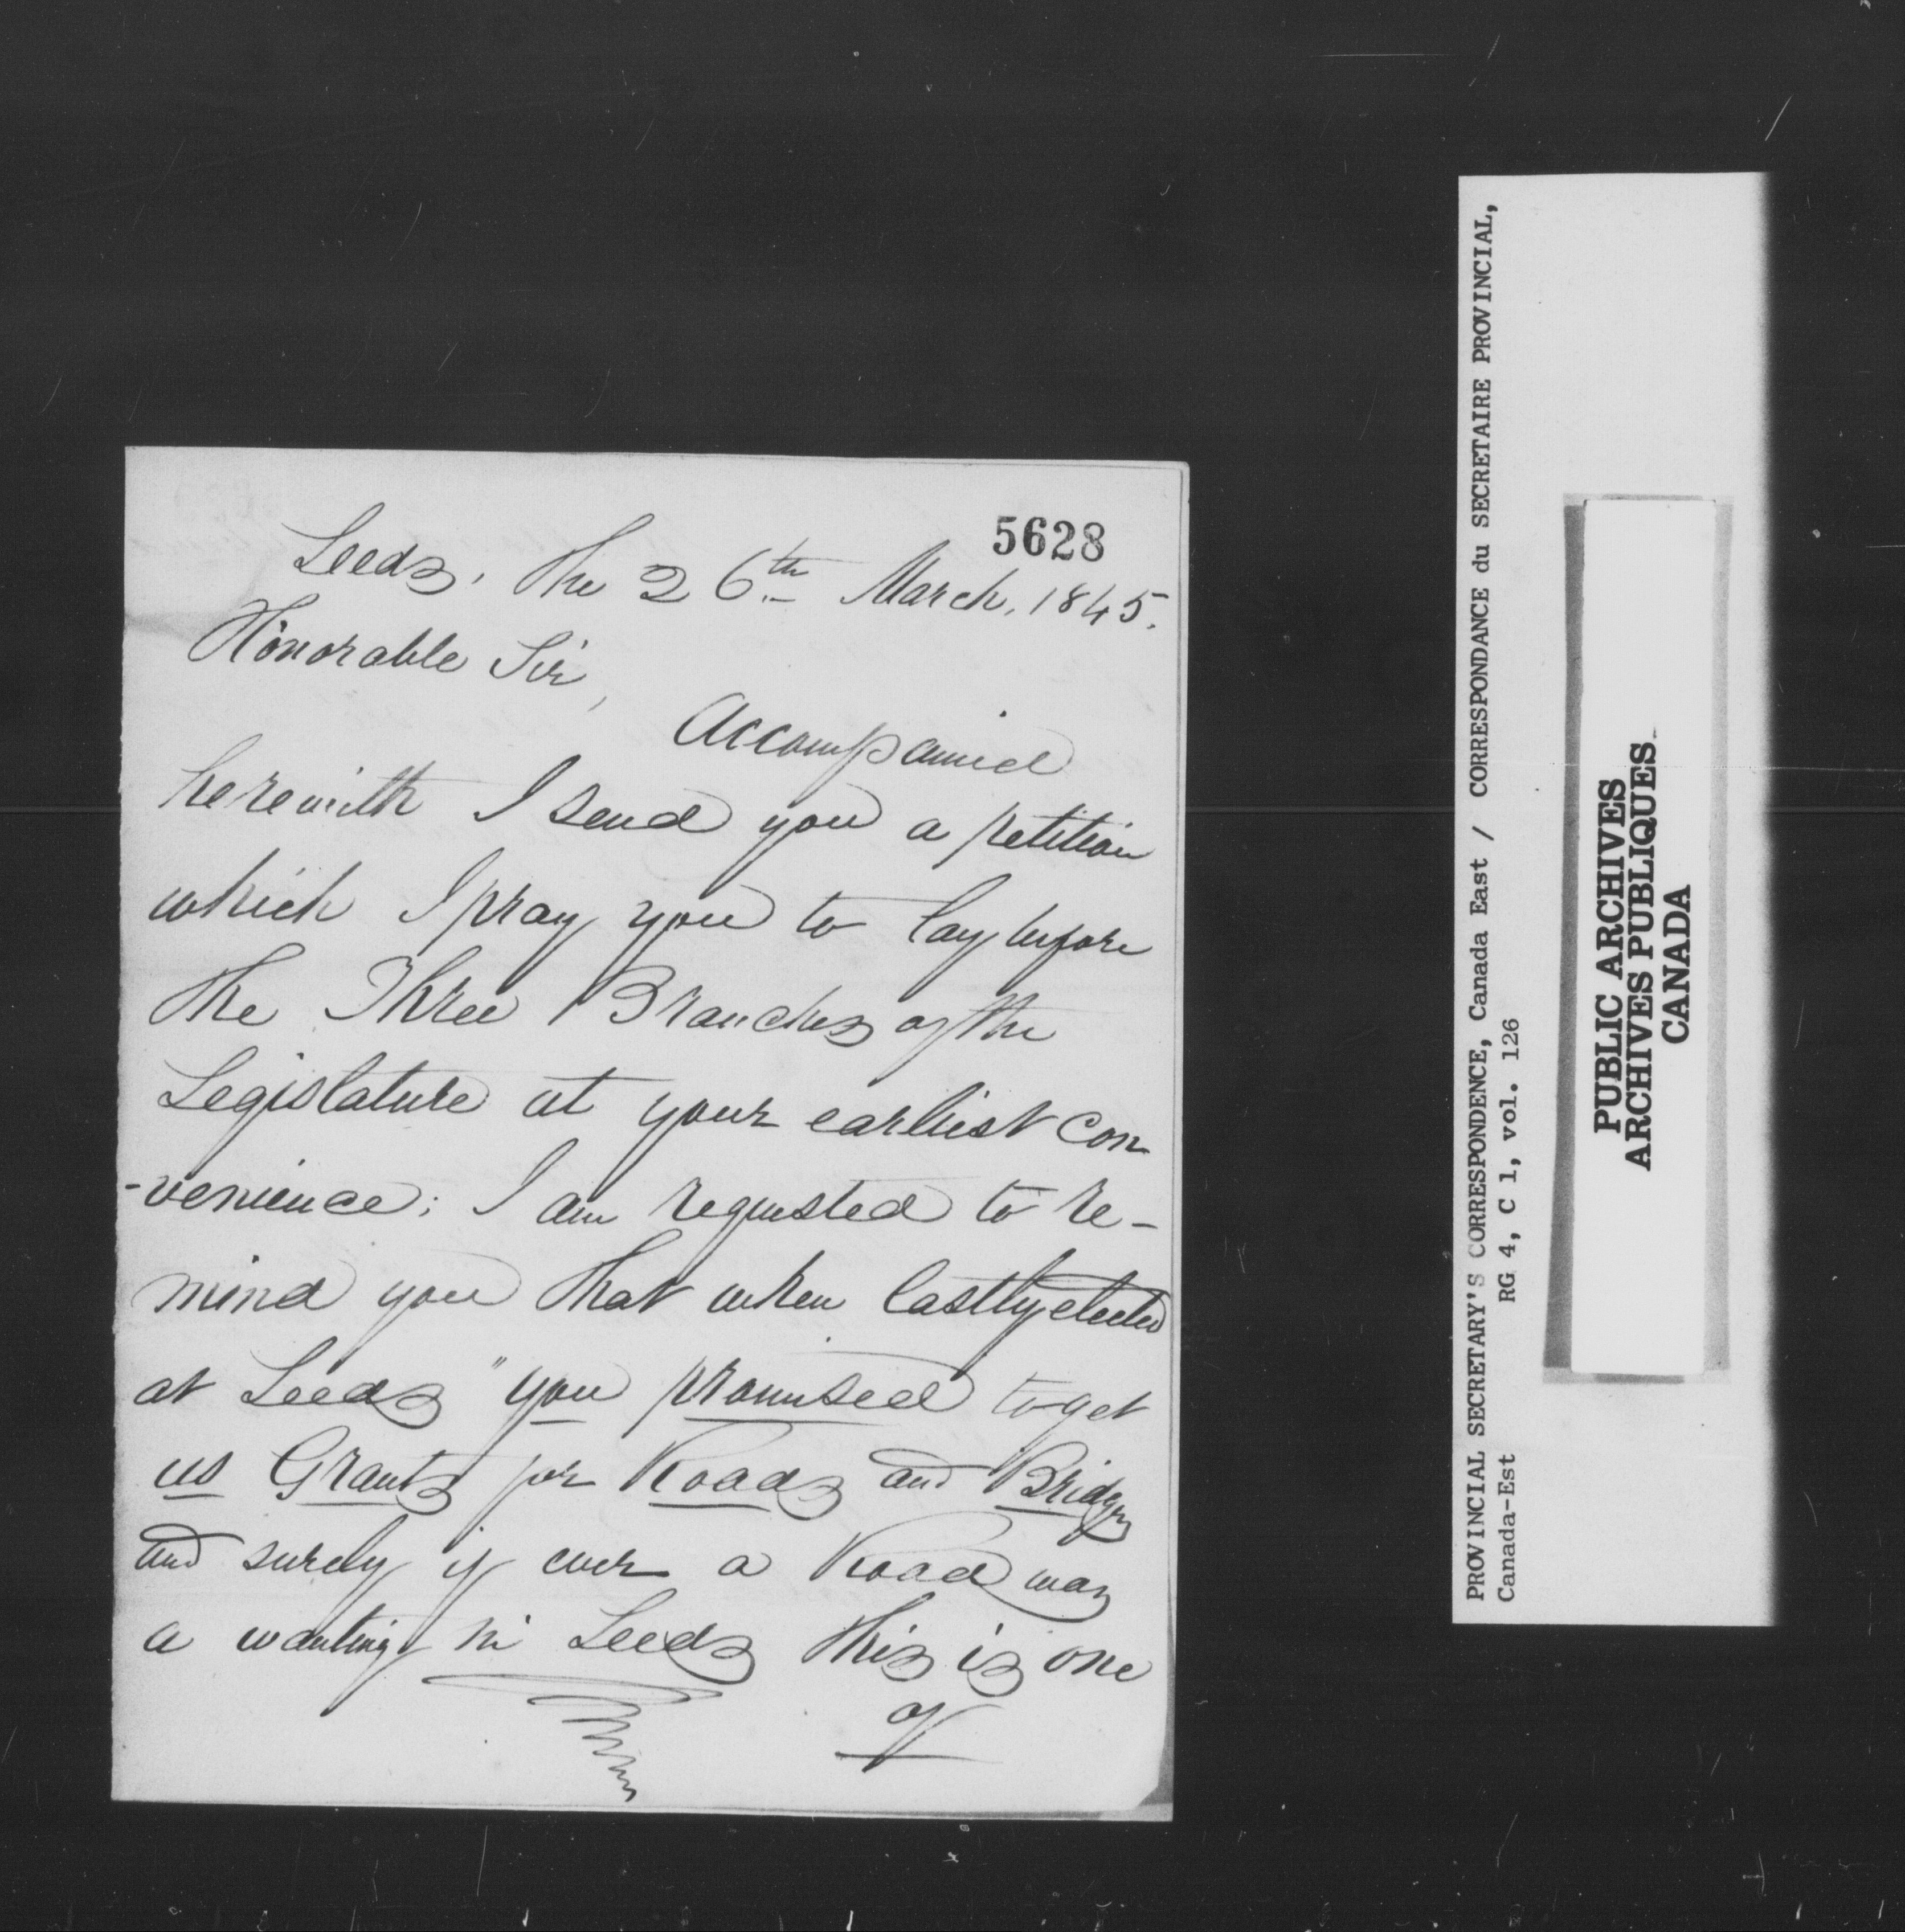 5628
Leeds, the 26th March, 1845.
Honorable Sir,
Accompanied
herewith I send you a petition
which I pray you to lay before
the Three Branches of the
Legislature at your earliest con
-venience; I am requested to re-
mind you that when lastly elected
at Leeds "you promised to get
us Grants for Roads and Bridges
and surely if ever a Road was
a wanting in Leeds this is one
PROVINCIAL SECRETARY'S CORRESPONDENCE, Canada East / CORRESPONDANCE du SECRETAIRE PROVINCIAL,
Canada-Est RG 4, C 1, vol. 126
PUBLIC ARCHIVES
ARCHIVES PUBLIQUES
CANADA